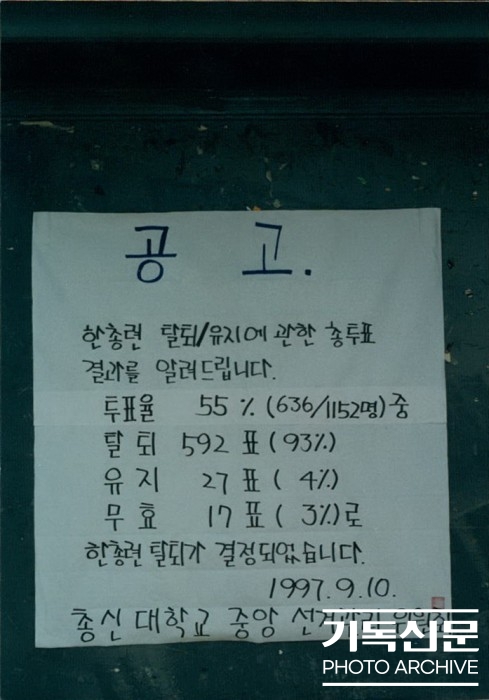 공 고.
한총련 탈퇴/유지에 관한 총투표
결과를 알려드립니다.
투표율 55 % (636/1152명) 중
탈 퇴 592 표 (93%)
유 지 27 표 ( 4%)
무 효 17 표 ( 3%)로
한총련 탈퇴가 결정되었습니다.
1997.9.10.
총신 대학교 중앙 선거관리 위원회
기독신문
PHOTO ARCHIVE